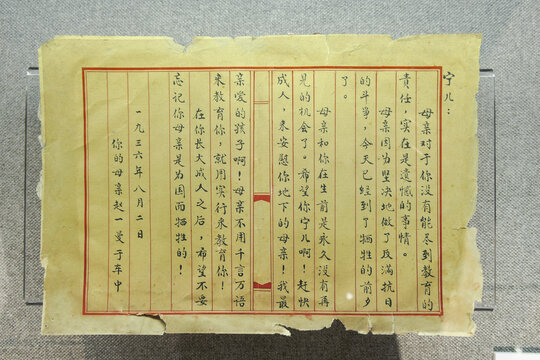 宁儿：
母亲对于你没有能尽到教育的
责任，实在是遗憾的事情。
母亲因为坚决地做了反满抗日
的斗争，今天已经到了牺牲的前夕
了。
母亲和你在生前是永久没有再
见的机会了。希望你宁儿啊！赶快
成人，来安慰你地下的母亲！我最
亲爱的孩子啊！母亲不用千言万语
来教育你，就用实行来教育你！
在你长大成人之后，希望不要
忘记你母亲是为国而牺牲的！
一九三六年八月二日
你的母亲赵一曼于车中